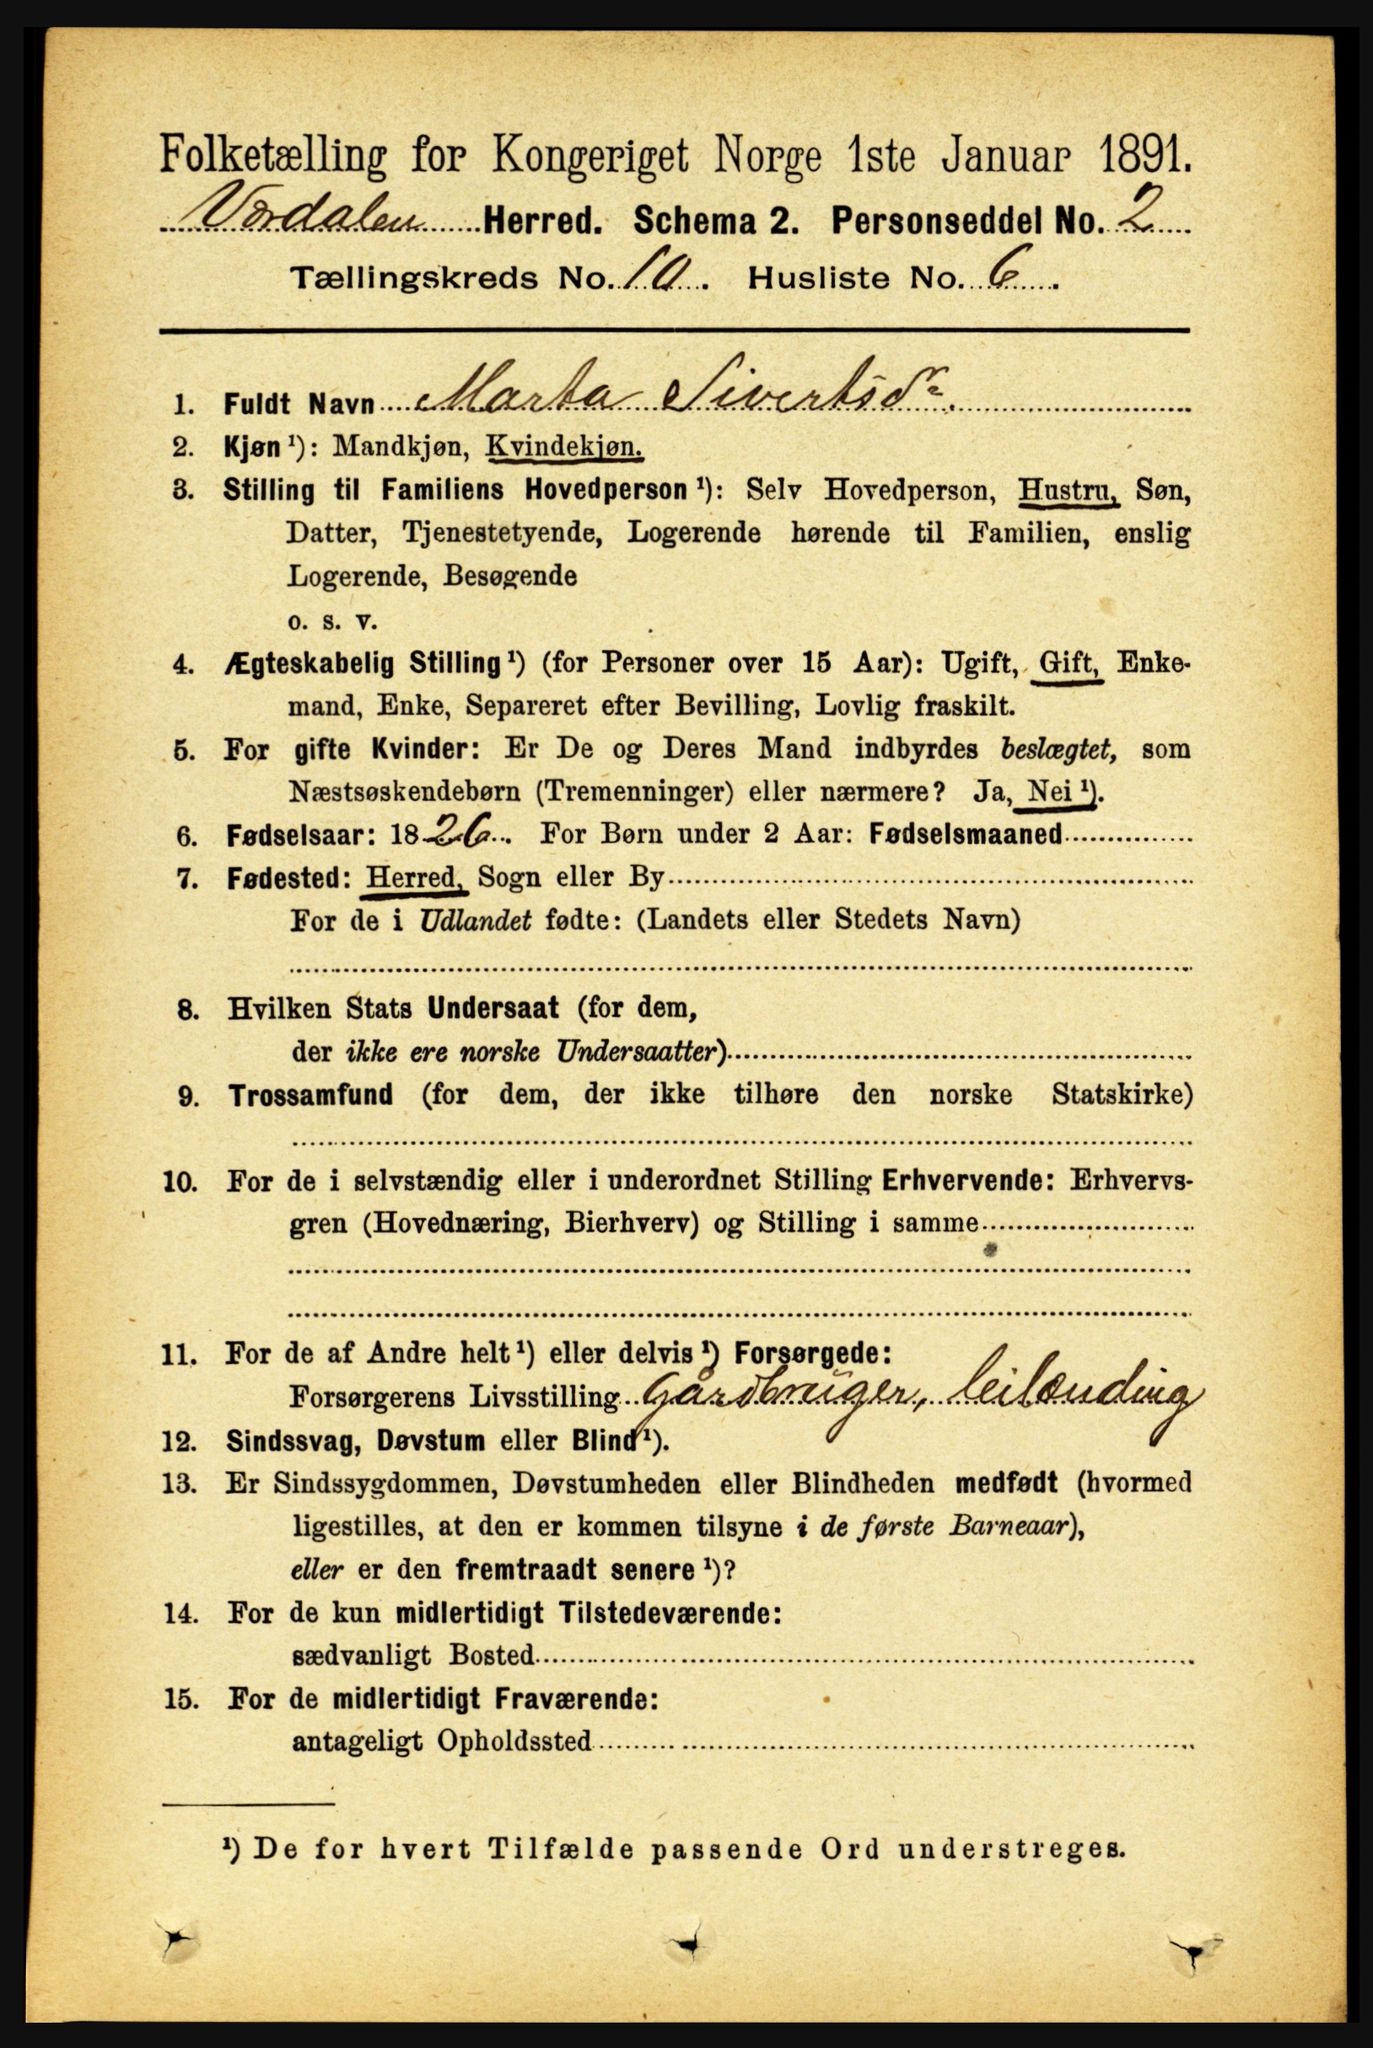 Folketælling for Kongeriget Norge 1ste Januar 1891.
Værdalen Herred. Schema 2. Personseddel No. 2
Tællingskreds No. 10. Husliste No. 6.
1. Fuldt Navn Marta Sivertsdr.
2. Kjøn ¹): Mandkjøn, Kvindekjøn.
3. Stilling til Familiens Hovedperson ¹): Selv Hovedperson, Hustru, Søn,
Datter, Tjenestetyende, Logerende hørende til Familien, enslig
Logerende, Besøgende
o. s. v.
4. Ægteskabelig Stilling ¹) (for Personer over 15 Aar): Ugift, Gift, Enke-
mand, Enke, Separeret efter Bevilling, Lovlig fraskilt.
5. For gifte Kvinder: Er De og Deres Mand indbyrdes beslægtet, som
Næstsøskendebørn (Tremenninger) eller nærmere? Ja, Nei ¹).
6. Fødselsaar: 1826. For Børn under 2 Aar: Fødselsmaaned
7. Fødested: Herred, Sogn eller By
For de i Udlandet fødte: (Landets eller Stedets Navn)
8. Hvilken Stats Undersaat (for dem,
der ikke ere norske Undersaatter)
9. Trossamfund (for dem, der ikke tilhøre den norske Statskirke)
10. For de i selvstændig eller i underordnet Stilling Erhvervende: Erhvervs-
gren (Hovednæring, Bierhverv) og Stilling i samme
11. For de af Andre helt ¹) eller delvis ¹) Forsørgede:
Forsørgerens Livsstilling Gårdbruger, leilænding
12. Sindssvag, Døvstum eller Blind ¹).
13. Er Sindssygdommen, Døvstumheden eller Blindheden medfødt (hvormed
ligestilles, at den er kommen tilsyne i de første Barneaar),
eller er den fremtraadt senere ¹)?
14. For de kun midlertidigt Tilstedeværende:
sædvanligt Bosted
15. For de midlertidigt Fraværende:
antageligt Opholdssted
¹) De for hvert Tilfælde passende Ord understreges.